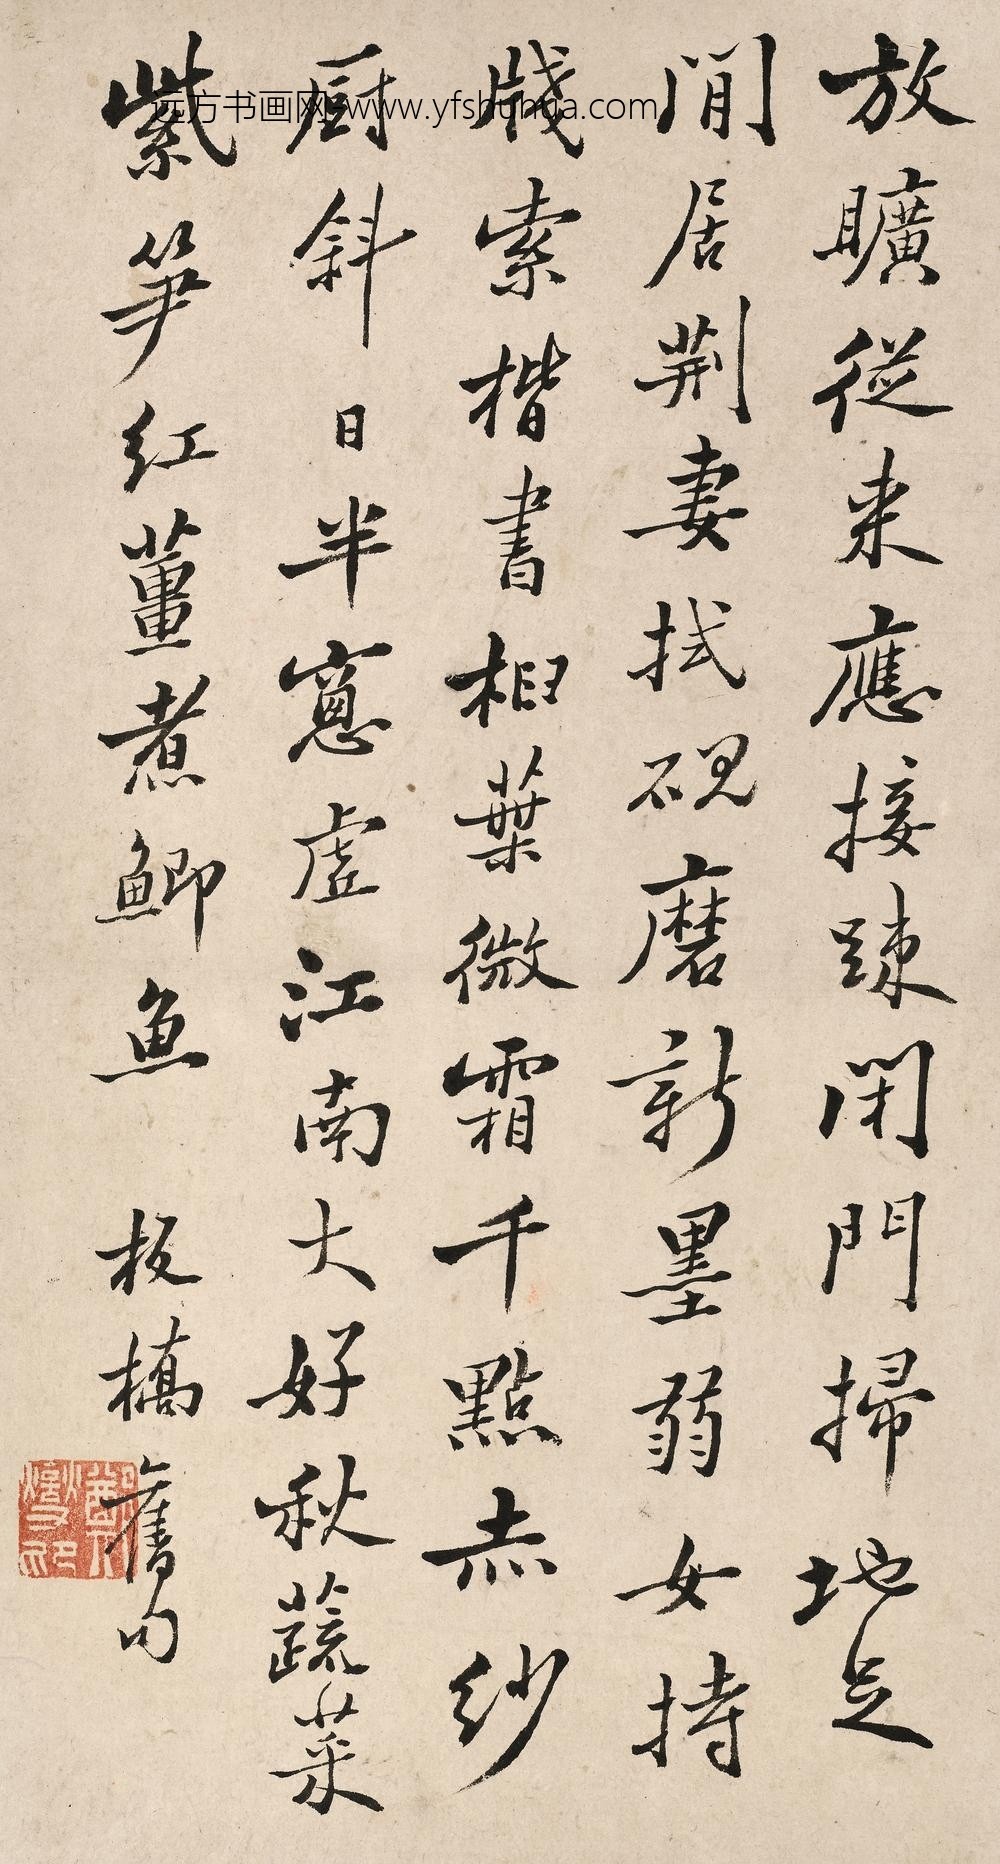 放曠從来應接踈閉門掃地足
閒居荆妻拭硯磨新墨弱女持
牋索楷書柏葉微霜千點赤紗
厨斜日半窻虛江南大好秋蔬菜
紫笋红薑煮鯽魚 板橋舊句
远方书画网-www.yfshuhua.com